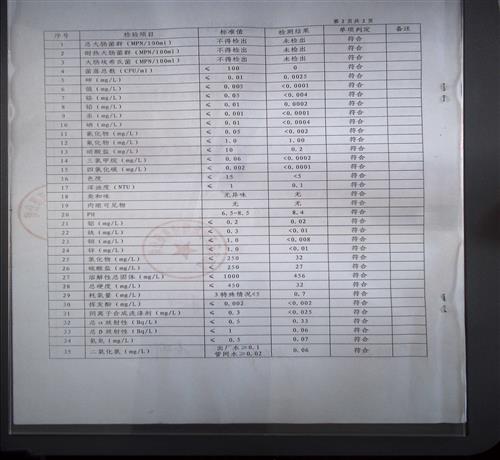 第 2 页 共 2 页
序号 检验项目 标准值 检测结果 单项判定 备注
1 总大肠菌群 (MPN/100ml) 不得检出 未检出 符合
2 耐热大肠菌群 (MPN/100ml) 不得检出 未检出 符合
3 大肠埃希氏菌 (MPN/100ml) 不得检出 未检出 符合
4 菌落总数 (CPU/ml) ≤ 100 0 符合
5 砷 (mg/L) ≤ 0.01 0.0025 符合
6 镉 (mg/L) ≤ 0.005 <0.0001 符合
7 铬 (mg/L) ≤ 0.05 <0.004 符合
8 铅 (mg/L) ≤ 0.01 0.0002 符合
9 汞 (mg/L) ≤ 0.001 <0.0001 符合
10 (mg/L) ≤ 0.01 <0.0004 符合
11 氰化物 (mg/L) ≤ 0.05 <0.002 符合
12 氟化物 (mg/L) ≤ 1.0 1.00 符合
13 硝酸盐 (mg/L) ≤ 10 0.2 符合
14 三氯甲烷 (mg/L) ≤ 0.06 <0.0002 符合
15 四氯化碳 (mg/L) ≤ 0.002 <0.0001 符合
16 色度 ≤ 15 <5 符合
17 浑浊度 (NTU) ≤ 1 0.1 符合
18 臭和味 无异味 无 符合
19 肉眼可见物 无 无 符合
20 PH 6.5-8.5 8.4 符合
21 铝 (mg/L) ≤ 0.2 0.02 符合
22 铁 (mg/L) ≤ 0.3 <0.01 符合
23 铜 (mg/L) ≤ 1.0 <0.008 符合
24 锌 (mg/L) ≤ 1.0 <0.01 符合
25 氯化物 (mg/L) ≤ 250 32 符合
26 硫酸盐 (mg/L) ≤ 250 27 符合
27 溶解性总固体 (mg/L) ≤ 1000 456 符合
28 总硬度 (mg/L) ≤ 450 32 符合
29 耗氧量 (mg/L) 3特殊情况<5 0.7 符合
30 挥发酚 (mg/L) ≤ 0.002 <0.002 符合
31 阴离子合成洗涤剂 (mg/L) ≤ 0.3 <0.025 符合
32 总α放射性 (Bq/L) ≤ 0.5 0.33 符合
33 总β放射性 (Bq/L) ≤ 1 0.06 符合
34 氨氮 (mg/L) ≤ 0.5 0.07 符合
35 二氧化氯 (mg/L) 出厂水≥0.1 0.06 符合
管网水≥0.02